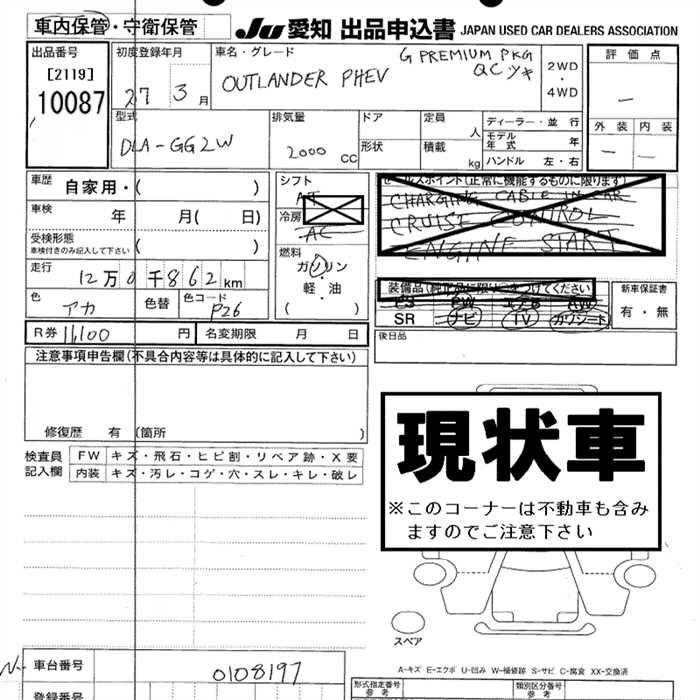 車内保管・守衛保管 JU 愛知 出品申込書 JAPAN USED CAR DEALERS ASSOCIATION
出品番号 初度登録年月 車名・グレード 評価点
[2119] G PREMIUM PKG
10087 27 3 月 OUTLANDER PHEV QC ツキ 2WD・4WD
型式 排気量 ドア 定員 人 ディーラー・並行 外装 内装
DLA-GG2W 2000 CC 形状 積載 kg モデル年式 年
ハンドル 左・右
車歴 自家用・( ) シフト セールスポイント(正常に機能するものに限ります)
AT CHARGING CABLE IN CAR
車検 年 月( 日) 冷房 CRUISE CONTROL
受検形態 AC ENGINE START
車検付きのみ記入して下さい ( ) 燃料
走行 12万0千862km ガソリン・軽油 装備品(純正品に限り○をつけてください) 新車保証書
( ) PS PW エアB AW 有・無
色 アカ 色替 色コード P26 SR ナビ TV カワシート
R券 11,100 円 名変期限 月 日 後日品
注意事項申告欄(不具合内容等は具体的に記入して下さい)
修復歴 有 (箇所 )
現状車
※このコーナーは不動車も含み
ますのでご注意下さい
検査員記入欄 FW キズ・飛石・ヒビ割・リペア跡・X要
内装 キズ・汚レ・コゲ・穴・スレ・キレ・破レ
スペア
A-キズ E-エクボ U-凹み W-補修跡 S-サビ C-腐食 XX-交換済
車台番号 0108197 形式指定番号 参考 類別区分番号 参考
登録番号